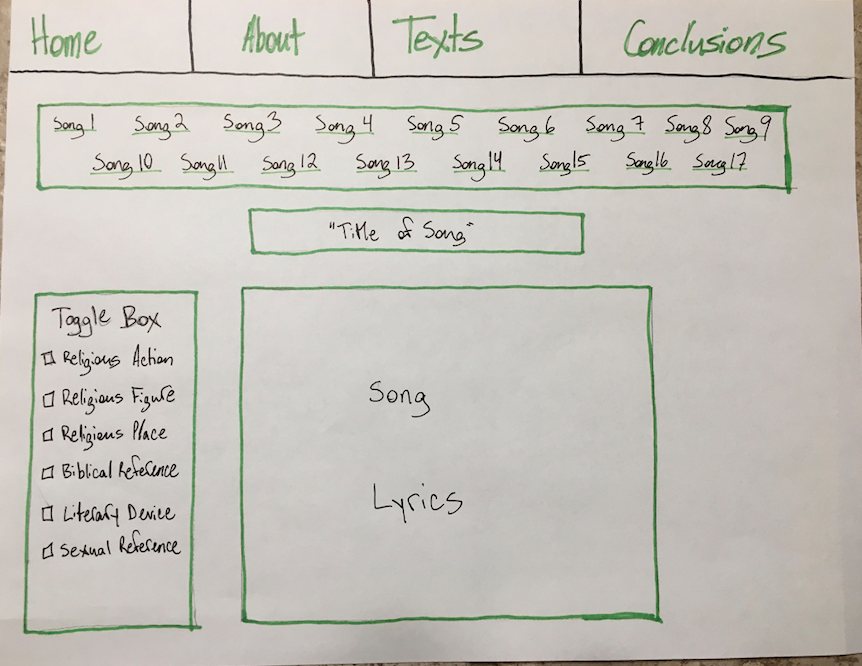 Home About Texts Conclusions
Song 1 Song 2 Song 3 Song 4 Song 5 Song 6 Song 7 Song 8 Song 9
Song 10 Song 11 Song 12 Song 13 Song 14 Song 15 Song 16 Song 17
"Title of Song"
Toggle Box
Religious Action
Religious Figure
Religious Place
Biblical Reference
Literary Device
Sexual Reference
Song
Lyrics